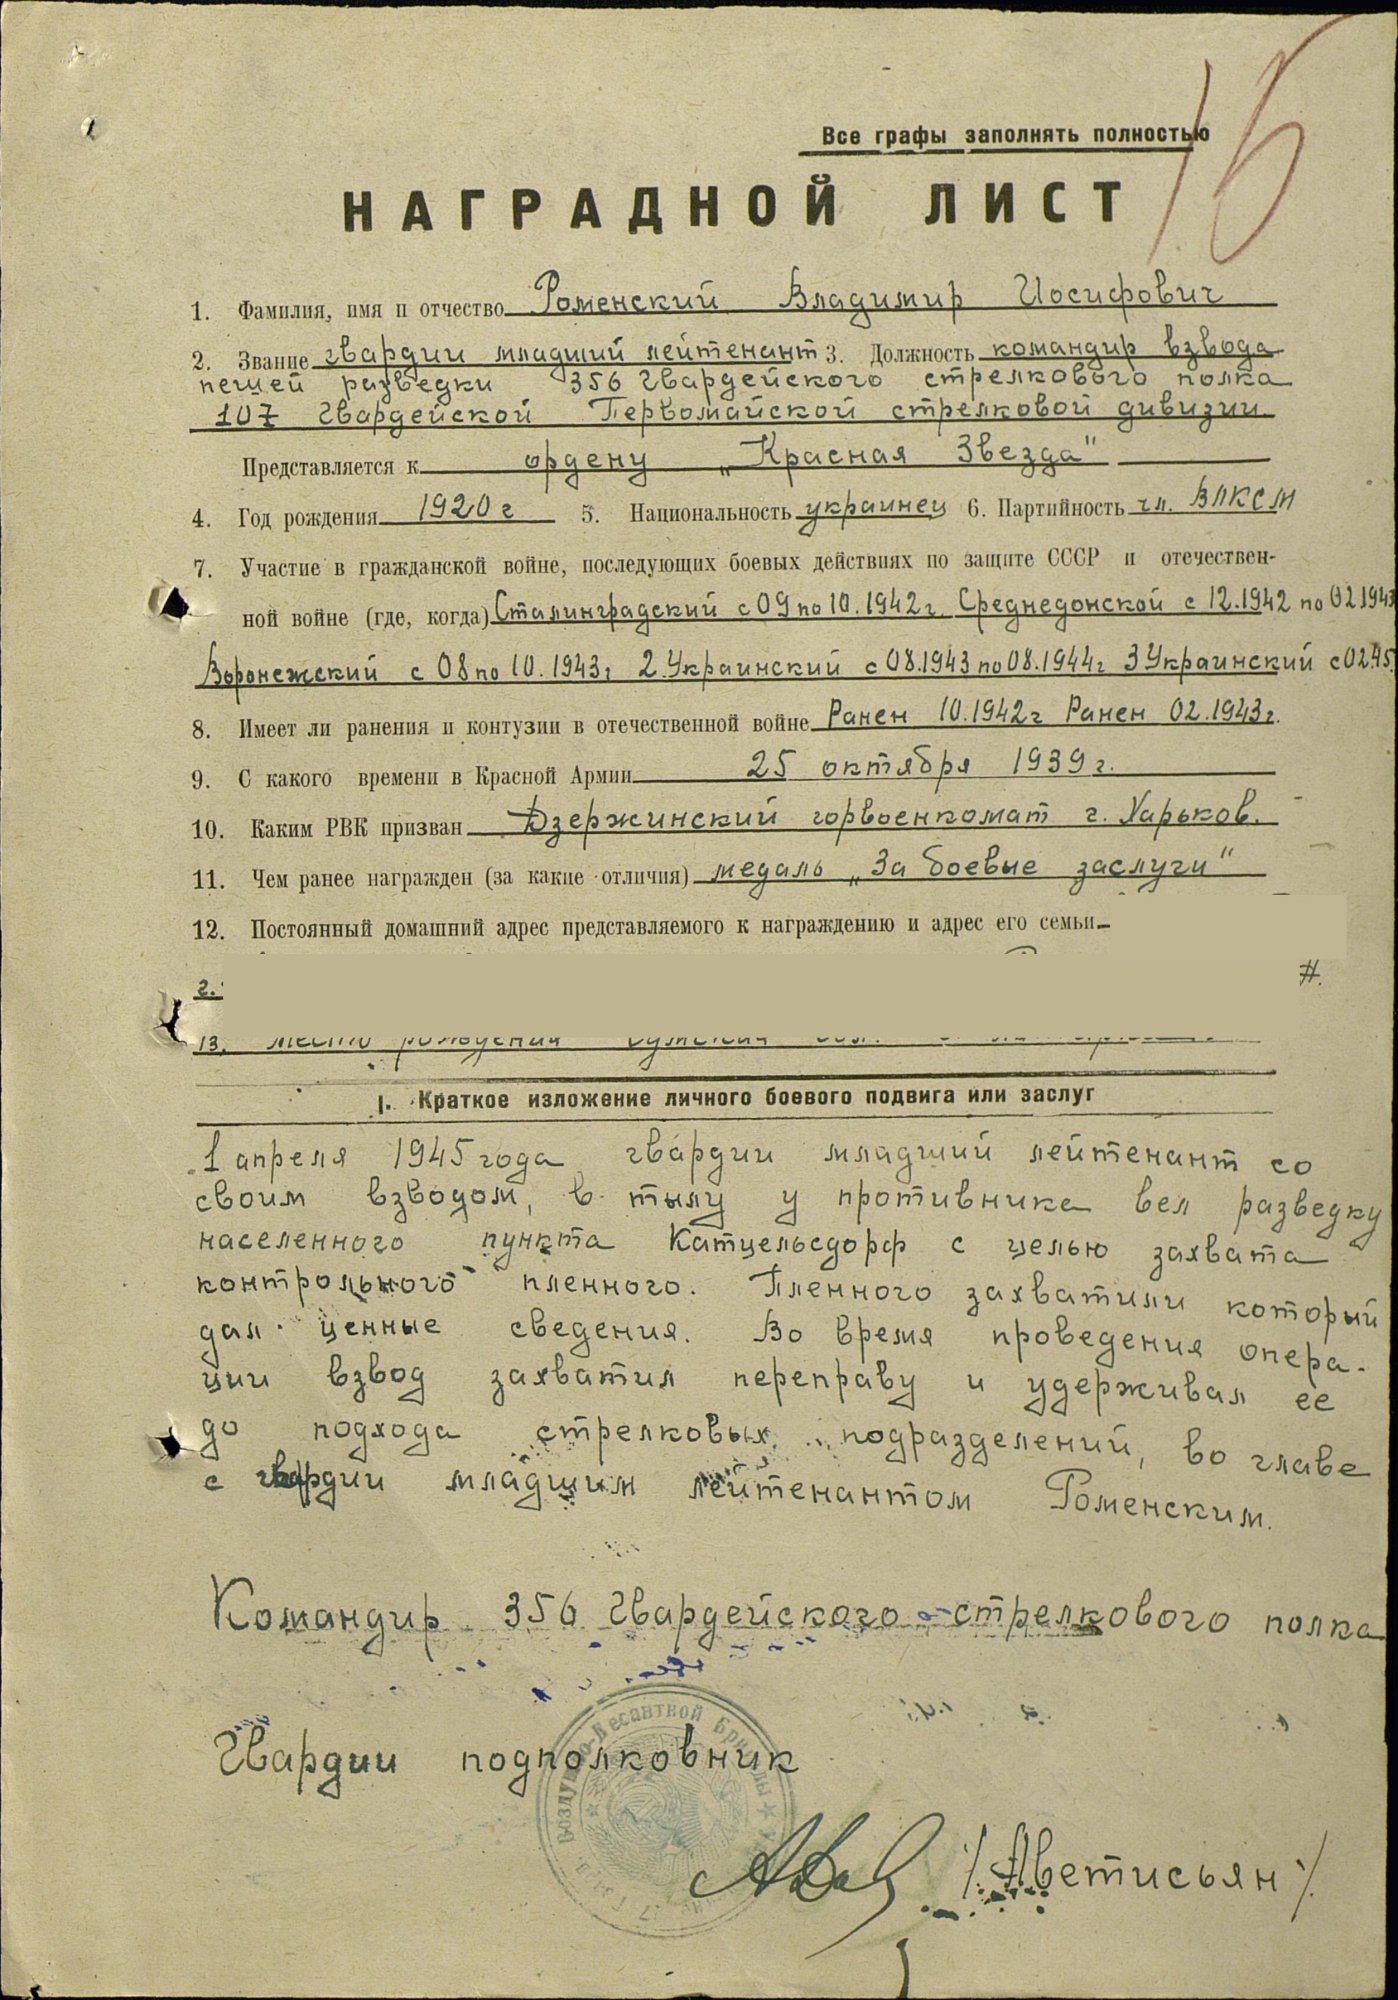 15
Все графы заполнять полностью
НАГРАДНОЙ ЛИСТ
1. Фамилия, имя и отчество Роменский Владимир Иосифович
2. Звание гвардии младший лейтенант 3. Должность командир взвода
пешей разведки 356 гвардейского стрелкового полка
107 Гвардейской Первомайской стрелковой дивизии
Представляется к ордену „Красная Звезда"
4. Год рождения 1920 г 5. Национальность украинец 6. Партийность чл. ВЛКСМ
7. Участие в гражданской войне, последующих боевых действиях по защите СССР и отечествен-
ной войне (где, когда) Сталинградский с 09 по 10.1942г. Среднедонской с 12.1942 по 02.1943
Воронежский с 08 по 10.1943г 2.Украинский с 08.1943 по 08.1944г 3 Украинский с 02.45.
8. Имеет ли ранения и контузии в отечественной войне Ранен 10.1942г Ранен 02.1943г.
9. С какого времени в Красной Армии 25 октября 1939г.
10. Каким РВК призван Дзержинский горвоенкомат г. Харьков.
11. Чем ранее награжден (за какие отличия) медаль „За боевые заслуги"
12. Постоянный домашний адрес представляемого к награждению и адрес его семьи
г.
13. место рождения Сумская обл.
I. Краткое изложение личного боевого подвига или заслуг
1 апреля 1945 года гвардии младший лейтенант со
своим взводом, в тылу у противника вел разведку
населенного пункта Катцельсдорф с целью захвата
контрольного пленного. Пленного захватили который
дал ценные сведения. Во время проведения опера-
ции взвод захватил переправу и удерживал ее
до подхода стрелковых подразделений, во главе
с гвардии младшим лейтенантом Роменским.
Командир 356 Гвардейского стрелкового полка
Гвардии подполковник
Воздушно-Десантной Бригады
/Аветисьян/